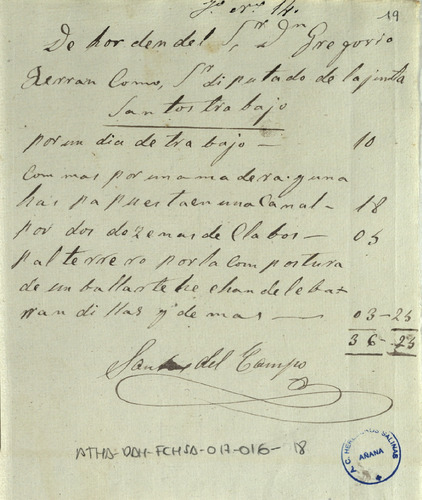 19
De horden del Sr Dn Gregorio
Herran Como, Sr diputado de lajunta
Santos trabajo
por un dia de trabajo — 10
com mas por una madera y una
has pa puesta en una Canal — 18
por dos dozenas de Clabos — 05
pal terrero por la compostura
de un ballarte he chan dele ba-
rran di llas y de mas — 03-23
36-23
Santos del Campo
ATHA-DAH-FCHSA-017-016- 18
A.C. HEREDEROS SALINAS
AÑANA